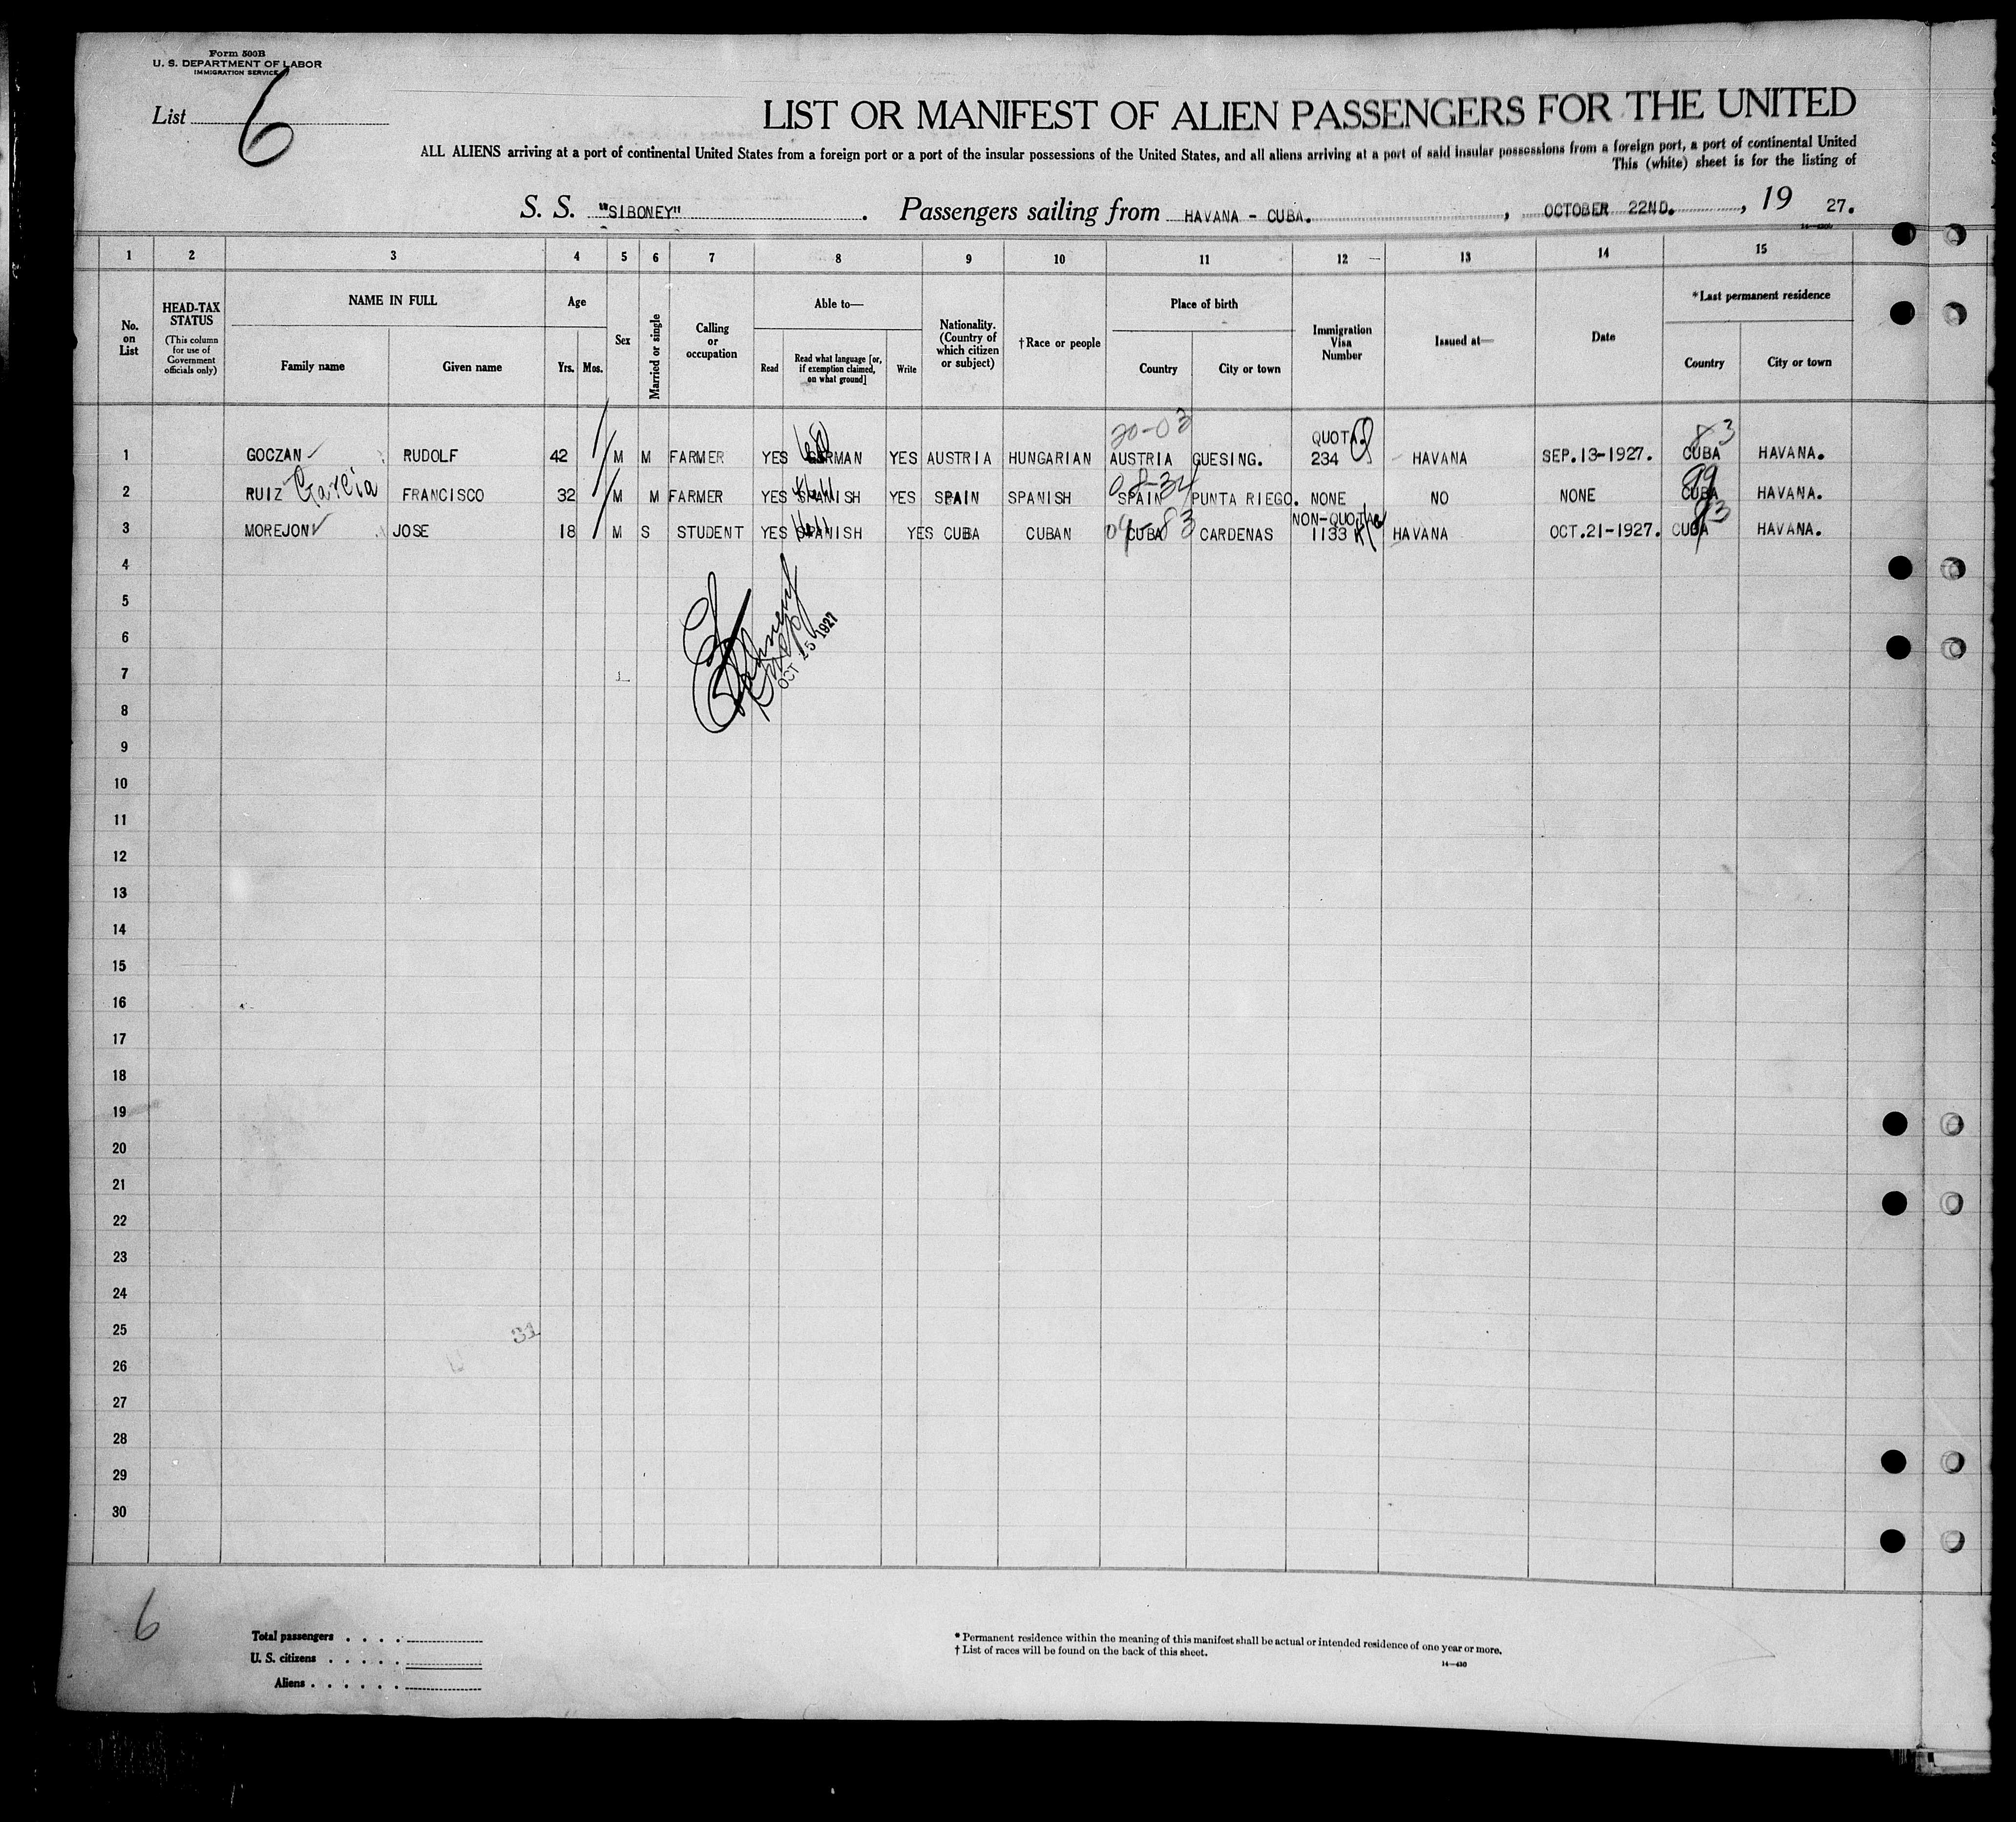 Form 500B
U. S. DEPARTMENT OF LABOR
IMMIGRATION SERVICE
List 6
LIST OR MANIFEST OF ALIEN PASSENGERS FOR THE UNITED
ALL ALIENS arriving at a port of continental United States from a foreign port or a port of the insular possessions of the United States, and all aliens arriving at a port of said insular possessions from a foreign port, a port of continental United
This (white) sheet is for the listing of
S. S. "SIBONEY" . Passengers sailing from HAVANA - CUBA. , OCTOBER 22ND. , 19 27.
1 2 3 4 5 6 7 8 9 10 11 12 13 14 15
No. on List
HEAD-TAX STATUS (This column for use of Government officials only)
NAME IN FULL
Family name Given name
Age
Yrs. Mos.
Sex
Married or single
Calling or occupation
Able to—
Read Read what language [or, if exemption claimed, on what ground] Write
Nationality. (Country of which citizen or subject)
†Race or people
Place of birth
Country City or town
Immigration Visa Number
Issued at—
Date
*Last permanent residence
Country City or town
20-03 QUOTA
1 GOCZAN RUDOLF 42 M M FARMER YES GERMAN YES AUSTRIA HUNGARIAN AUSTRIA GUESING. 234 HAVANA SEP.13-1927. CUBA HAVANA.
08-34
2 RUIZ Garcia FRANCISCO 32 M M FARMER YES SPANISH YES SPAIN SPANISH SPAIN PUNTA RIEGO. NONE NO NONE CUBA HAVANA.
04-83 NON-QUOTA
3 MOREJON JOSE 18 M S STUDENT YES SPANISH YES CUBA CUBAN CUBA CARDENAS 1133 HAVANA OCT.21-1927. CUBA HAVANA.
4
5
6
OCT 25 1927
7
8
9
10
11
12
13
14
15
16
17
18
19
20
21
22
23
24
25
31
26
27
28
29
30
6
Total passengers . . . .
U. S. citizens . . . . .
Aliens . . . . . .
* Permanent residence within the meaning of this manifest shall be actual or intended residence of one year or more.
† List of races will be found on the back of this sheet.
14—430